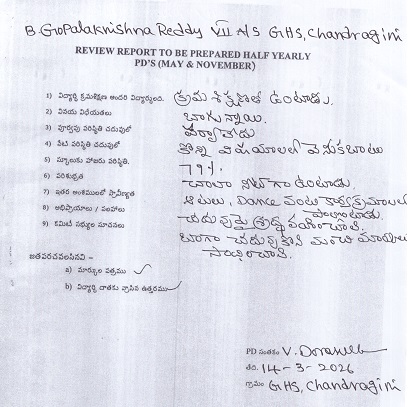 B. GoPalakrishna Reddy VII A/S GHS, Chandragini
REVIEW REPORT TO BE PREPARED HALF YEARLY
PD'S (MAY & NOVEMBER)
1) విద్యార్థి క్రమశిక్షణ అందరి విద్యార్థులది. క్రమ శిక్షణతో ఉంటాడు.
2) వినయ విధేయతలు బాగున్నాయి.
3) పూర్వపు పరిస్థితి చదువులో పర్వాలేదు
4) నేటి పరిస్థితి చదువులో కొన్ని విషయాలలో వెనుకబాటు
5) స్కూలుకు హాజరు పరిస్థితి. 79%
6) పరిశుభ్రత చాలా నీట్ గా ఉంటాడు.
7) ఇతర అంశములలో ప్రావీణ్యత ఆటలు, Dance వంటి కార్యక్రమాలలో
పాల్గొంటాడు.
8) అభిప్రాయాలు / సలహాలు చదువుపై శ్రద్ధ వహించాలి.
9) కమిటీ సభ్యుల సూచనలు బాగా చదువుకొని మంచి మార్కులు
సాధించాలి.
జతపరచవలసినవి -
a) మార్కుల పత్రము ✓
b) విద్యార్థి దాతకు వ్రాసిన ఉత్తరము ✓
PD సంతకం V.
తేది. 14-3-2026
గ్రామం GHS, Chandragini